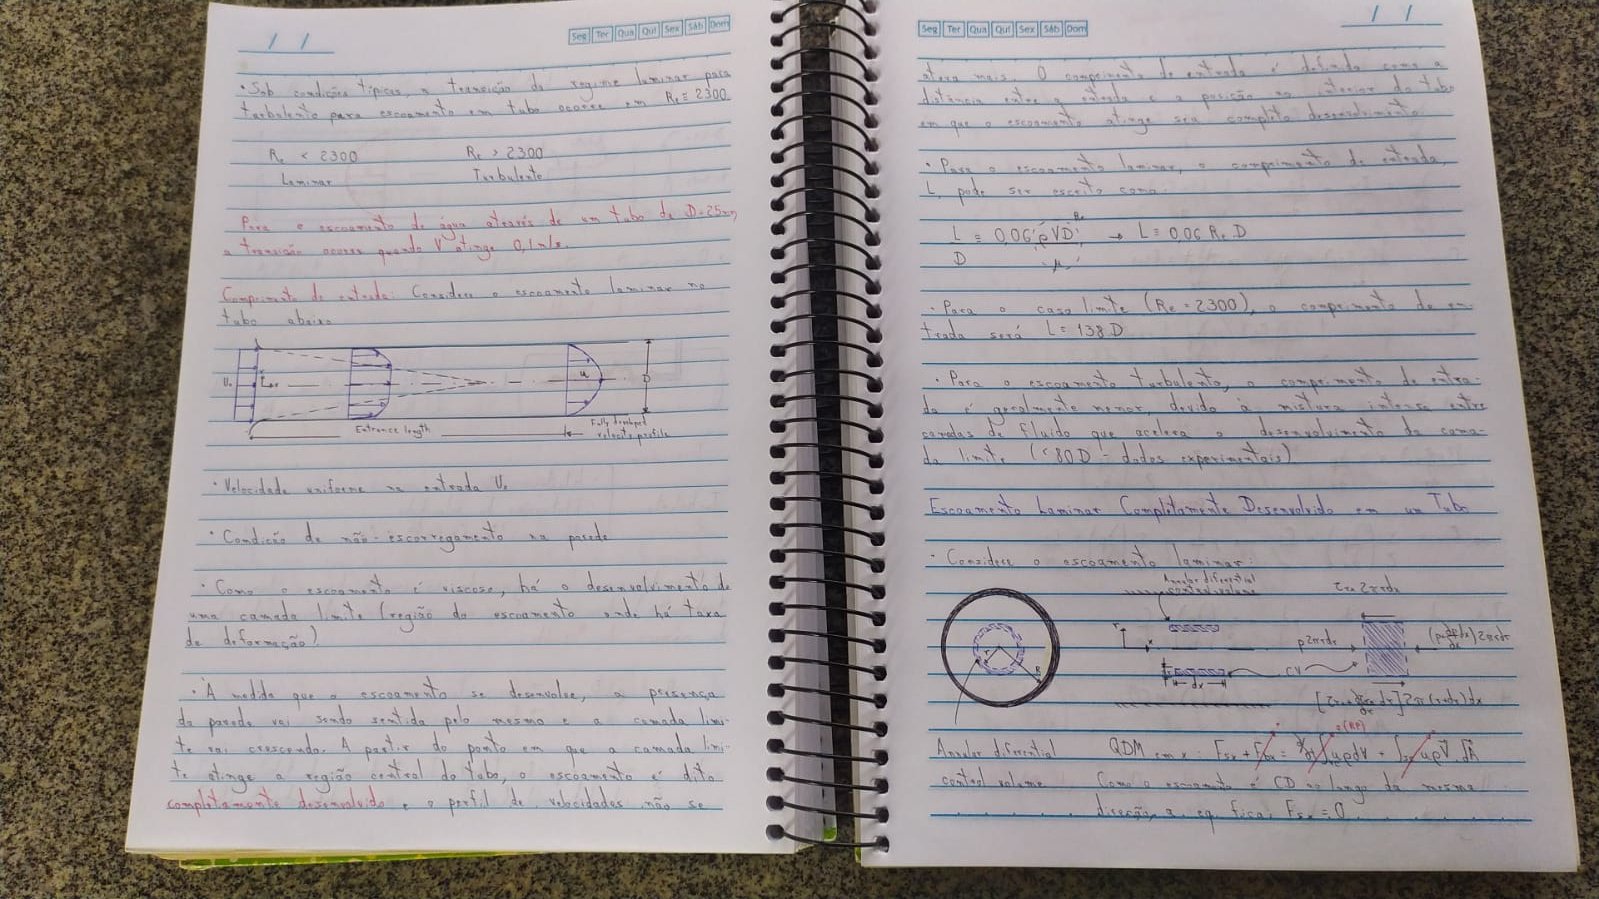 / /
Seg Ter Qua Qui Sex Sáb Dom
• Sob condições típicas, a transição do regime laminar para
turbulento para escoamento em tubo ocorre em Re = 2300
Re < 2300 Re > 2300
Laminar Turbulento
Para o escoamento de água através de um tubo de D=25mm,
a transição ocorre quando V atinge 0,1 m/s.
Comprimento de entrada: Considere o escoamento laminar no
tubo abaixo
U₀ r x u D
Entrance length
Fully developed
velocity profile
• Velocidade uniforme na entrada U₀
• Condição de não-escorregamento na parede
• Como o escoamento é viscoso, há o desenvolvimento de
uma camada limite (região do escoamento onde há taxa
de deformação)
• À medida que o escoamento se desenvolve, a presença
da parede vai sendo sentida pelo mesmo e a camada limi-
te vai crescendo. A partir do ponto em que a camada limi-
te atinge a região central do tubo, o escoamento é dito
completamente desenvolvido e o perfil de velocidades não se
Seg Ter Qua Qui Sex Sáb Dom
/ /
altera mais. O comprimento de entrada é definido como a
distância entre a entrada e a posição no interior do tubo
em que o escoamento atinge seu completo desenvolvimento
• Para o escoamento laminar, o comprimento de entrada,
L, pode ser escrito como:
Re
L = 0,06 ρVD → L = 0,06 Re D
D μ
• Para o caso limite (Re = 2300), o comprimento de en-
trada será L = 138 D
• Para o escoamento turbulento, o comprimento de entra-
da é geralmente menor, devido à mistura intensa entre
camadas de fluido que acelera o desenvolvimento da cama-
da limite (<80D - dados experimentais)
Escoamento Laminar Completamente Desenvolvido em um Tubo
• Considere o escoamento laminar:
Annular differential
control volume
r R
r x
dr dx
CV
τrx 2πrdx
p2πrdr
(p+∂p/∂x dx)2πrdr
[τrx+∂τrx/∂r dr]2π(r+dr)dx
Annular diferential
control volume
0(RP)
QDM em x: Fsx + FBx = ∂/∂t∫vc uρdV + ∫sc uρV⃗.dA⃗
Como o escoamento é CD ao longo da mesma
direção, a eq. fica: Fsx = 0